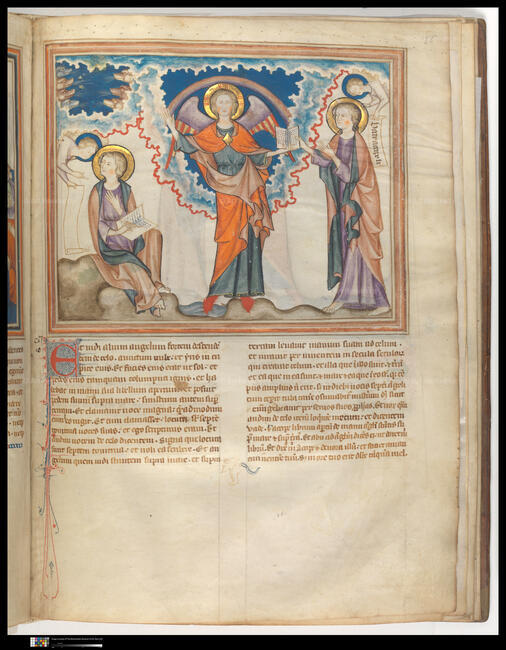 Et uidi alium angelum fortem descende
tem de celo. amictum nube. et yris in ca
pite eius. Et facies eius erat ut sol. et
pedes eius tmquam columpna ignis. et ha
bebat in manu sua libellum apertum. et posuit
pedem suum supra mare. sinistrum autem sup
terram. Et clamauit uoce magna: quemadmodum
leo rugit. Et cum clamasset. locuta st septem
tonitrua uoces suas. et ego scripturus eram. Et
audiui uocem de celo dicentem. Signa que locuta
sunt septem tonitrua. et noli ea scribere. Et an
gelum quem uidi stantem supra mare. et supra
terram leuauit manum suam ad celum.
et iurauit per uiuentem in secula seculor
qui creauit celum. et illa que ibi sunt. et trā
et ea que in ea sunt. et mare et ea que in eo st. quia tē
pus amplius nō erit. in diebus uocis septimi angeli
cum tuba canere misteriū dī sicut
euangelizauit per seruos suos. Et uox quā
audiui de celo loquētem mecum. et dicentem
uade. accipe librum apertū de manu angeli stātis su
pra mare et supra trā. Et abii ad angelū dicēs ei ut daret michi
librum. Et dixit michi accipe et deuora illum. et faciet
uentrem tuum. in ore tuo erit dulce tāquam mel.